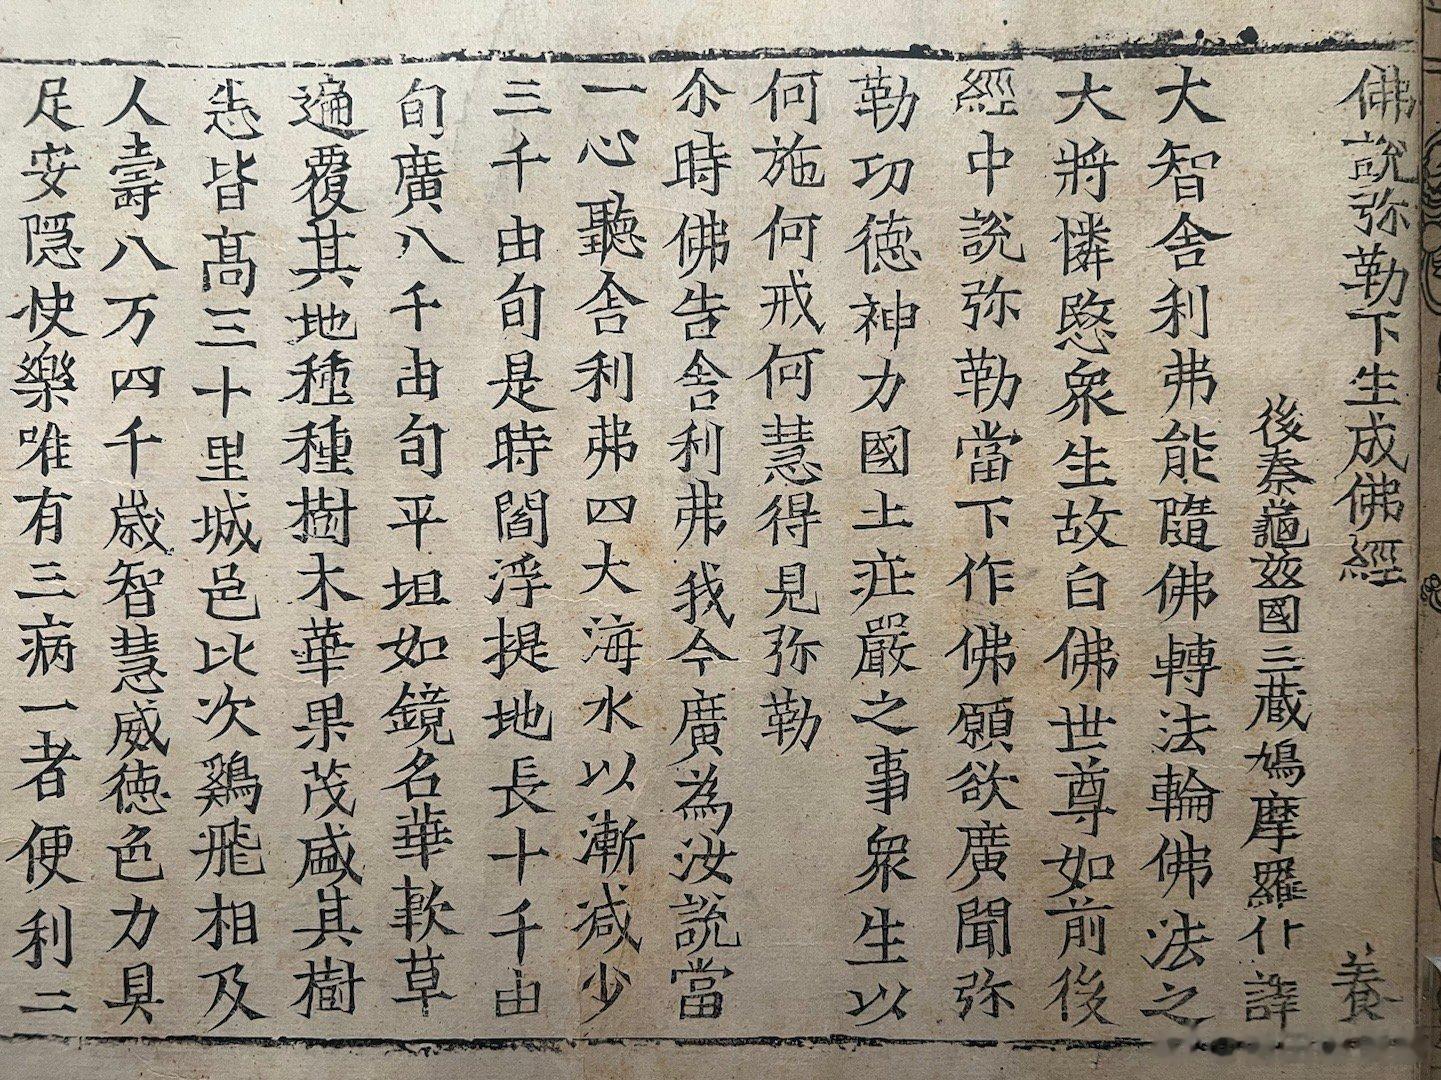 佛説弥勒下生成佛經　養
後秦龜兹國三藏鳩摩羅什譯
大智舎利弗能隨佛轉法輪佛法之
大將憐愍衆生故白佛世尊如前後
經中説弥勒當下作佛願欲廣聞弥
勒功德神力國土莊嚴之事衆生以
何施何戒何慧得見弥勒
尒時佛告舎利弗我今廣為汝説當
一心聽舎利弗四大海水以漸減少
三千由旬是時閻浮提地長十千由
旬廣八千由旬平坦如鏡名華軟草
遍覆其地種種樹木華果茂盛其樹
悉皆髙三十里城邑比次鷄飛相及
人壽八万四千歳智慧威徳色力具
足安隠快樂唯有三病一者便利二